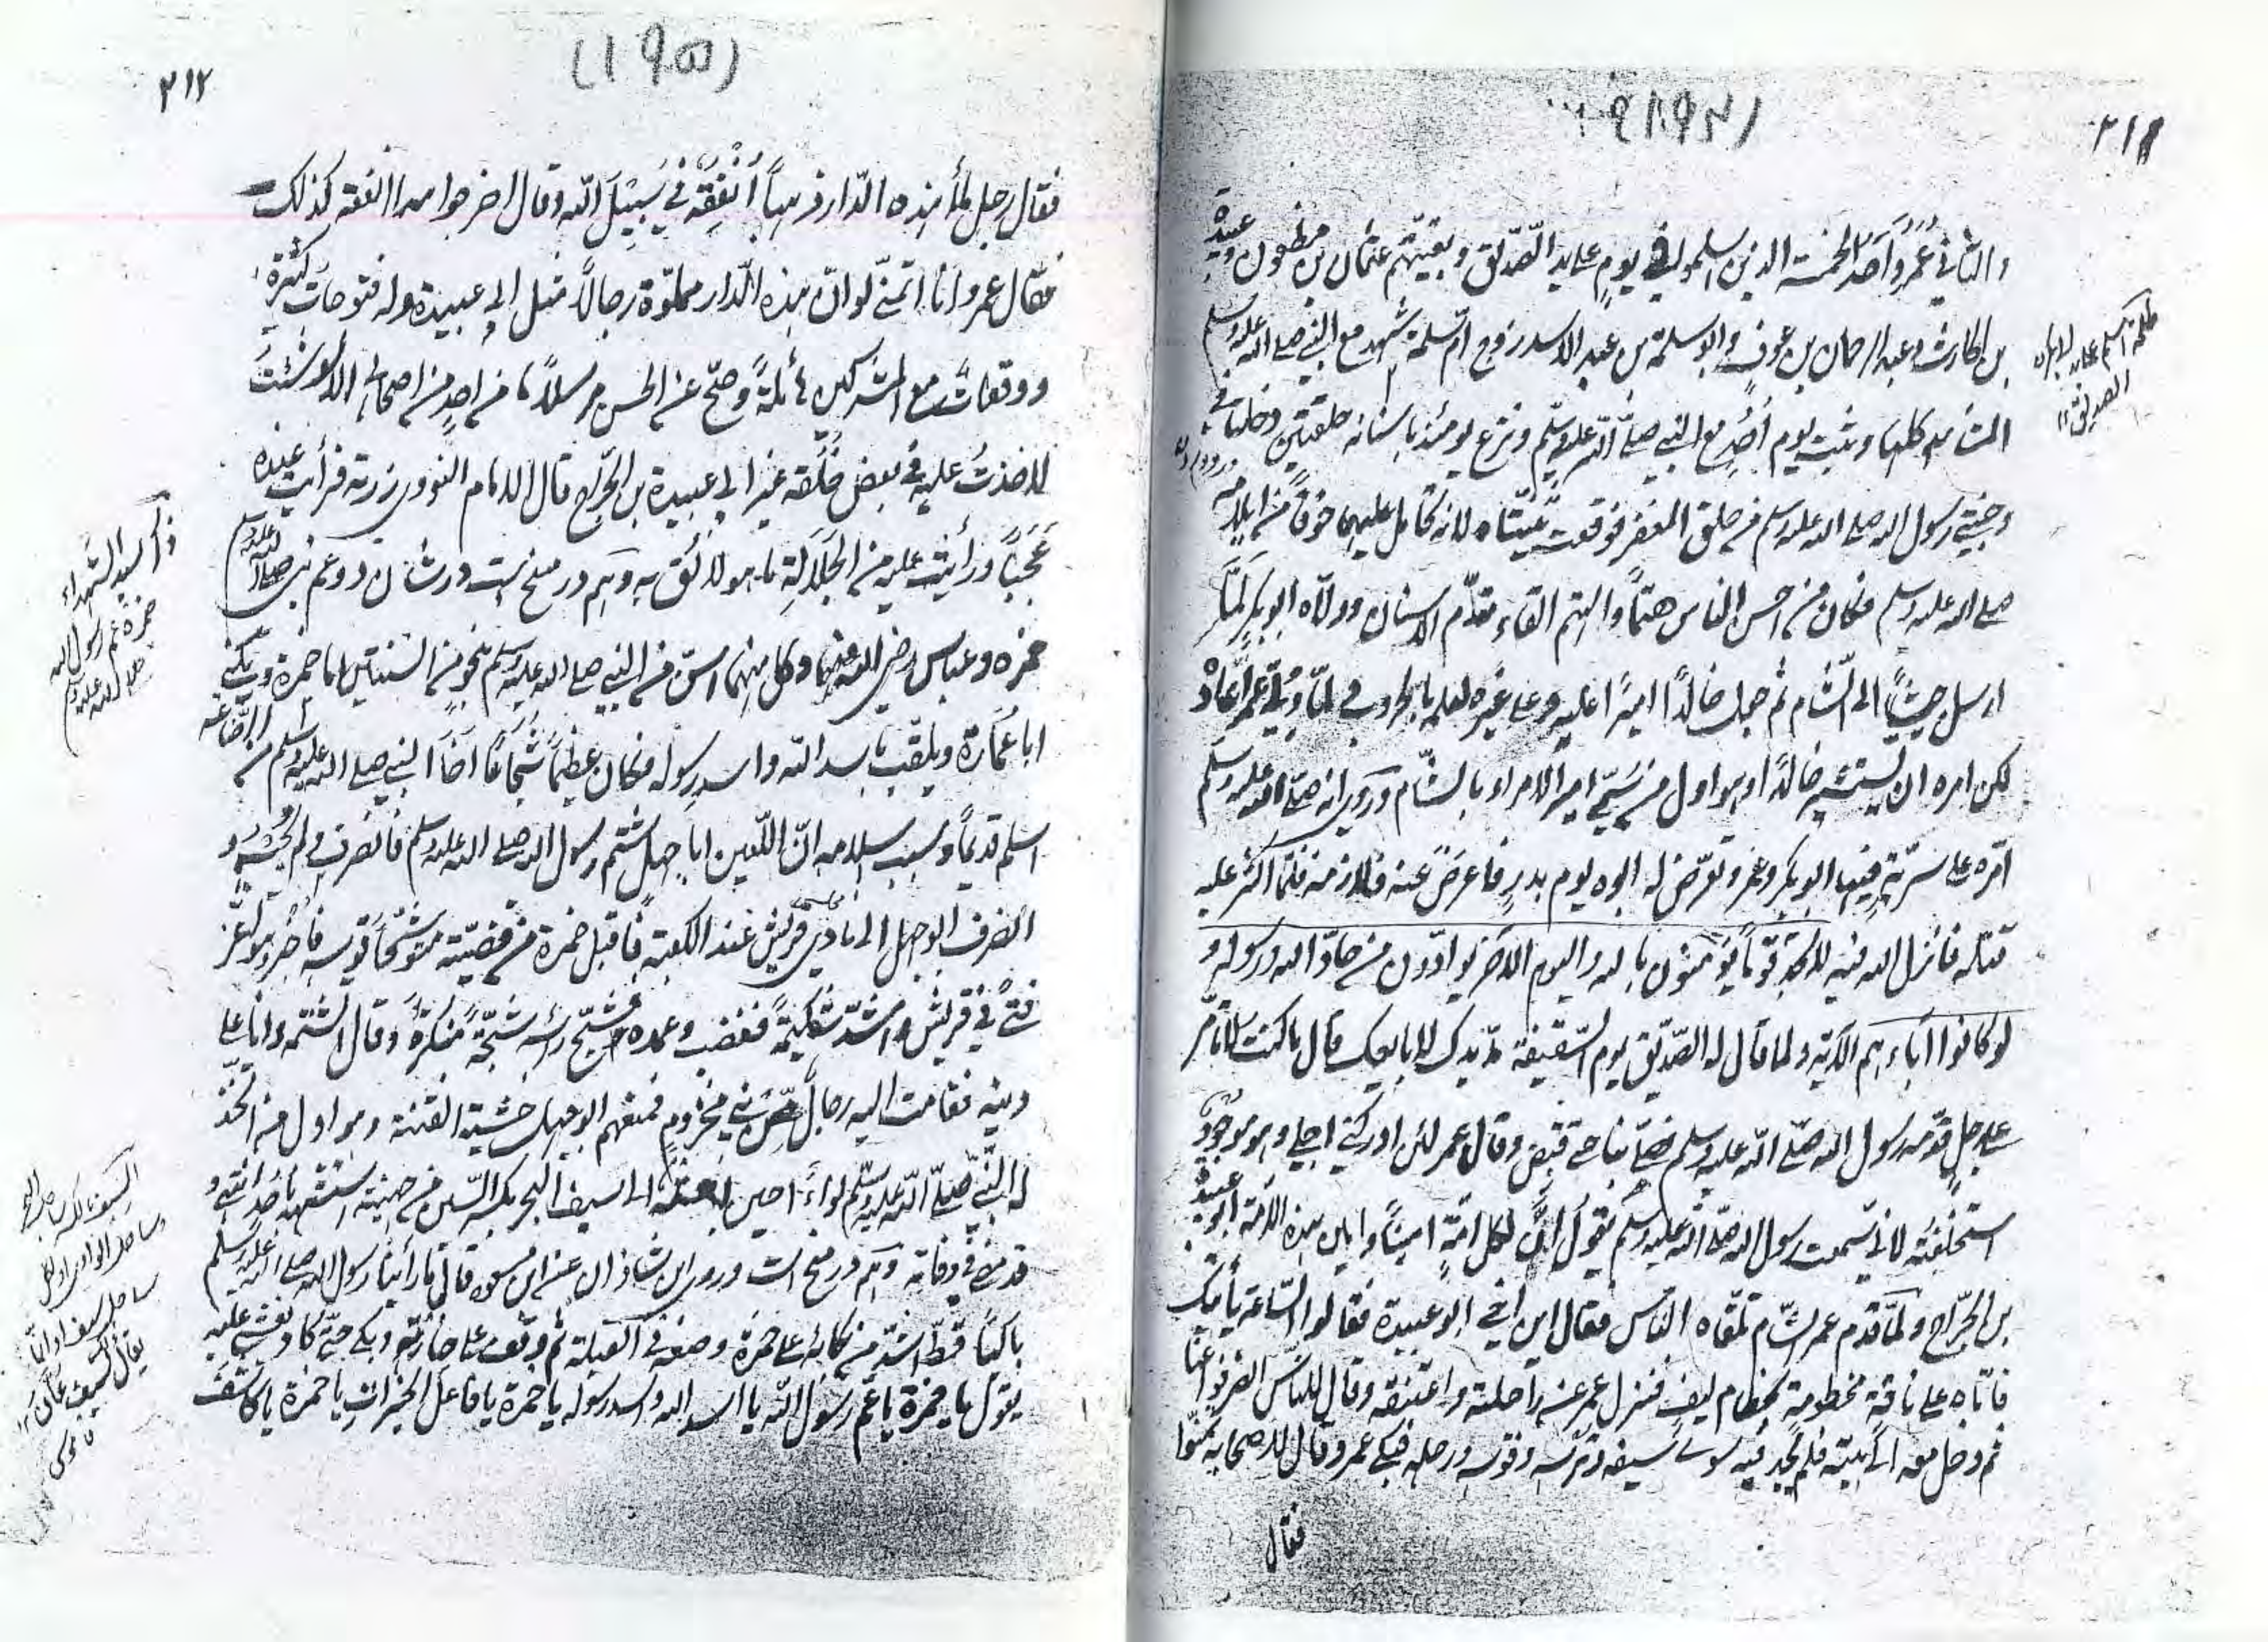 ٢١١
والثاني عُمَرُ وَأحَدُ الخمسة الذين اسلموا في يومٍ على يد الصّدّيق وبقيتهم عثمان بن مظعون وعبيدة
بن الحارث وعبد الرحمان بن عوفٍ وابو سلمة بن عبد الاسد زوج امّ سلمة شهد مع النبي صلى الله عليه وسلم
المشاهد كلها وثبت يوم أُحُدٍ مع النبي صلّى الله عليه وسلّم ونزع يومئذ باسنانه حلقتين دخلتا في
وجنتي رسول الله صلى الله عليه وسلم من حلق المغفر فوقعت ثنيّتاه لانه تحامل عليهما خوفًا من ايلامه
صلى الله عليه وسلم فكان من احسن الناس هتمًا والهتم القاء مقدّم الاسنان وولّاه ابو بكر لمّا
ارسل جيشًا الى الشّام ثم جعل خالدًا اميرًا عليه وعلى غيره لعلمه بالحروب فلمّا وُلّي عمر أعاده
لكن امره ان يستشير خالدًا وهو اول من سُمّي امير الامراء بالشّام ورُوي انه صلى الله عليه وسلم
امّره على سريّةٍ فيها ابو بكر وعمر وتعرّض له ابوه يوم بدرٍ فاعرض عنه فلازمه فلمّا اكثر عليه
قتله فانزل الله فيه لا تجد قومًا يؤمنون بالله واليوم الآخر يوادّون من حادّ الله ورسوله و
لو كانوا آباءهم الآية ولما قال له الصّدّيق يوم السّقيفة مدّ يدك لابايعك قال ما كنت لاتأمّر
على رجلٍ قدّمه رسول الله صلّى الله عليه وسلم فصلّى بنا حتى قُبض وقال عمر لئن ادركني اجلي وهو موجودٌ
استخلفته لاني سمعت رسول الله صلى الله عليه وسلم يقول انّ لكل امّةٍ امينًا وامين هذه الامّة ابو عبيدة
بن الجرّاح ولمّا قدم عمر الشّام تلقّاه الناس فقال اين اخي ابو عبيدة فقالوا السّاعة يأتيك
فاتاه على ناقةٍ مخطومةٍ بخطام ليفٍ فنزل عمر عن راحلته واعتنقه وقال للنّاس انصرفوا عنّا
ثم دخل معه الى بيته فلم يجد فيه سوى سيفه وترسه وقوسه ورحله فبكى عمر وقال لاصحابه تمنّوا
فقال
(١٩٥)
٢١٢
فقال رجل ملأ هذه الدّار ذهبًا أُنْفِقُه في سَبِيْل الله وقال اخر جواهرا انفقه كذلك
فقال عمر وانا اتمنّى لو انّ هذه الدّار مملوّة رجالًا مثل ابي عبيدة وله فتوحات كثيرة
ووقعات مع المشركين هائلةً وصحّ عن الحسن مرسلًا ما من احدٍ من اصحابي الا لو شئت
لاخذتُ عليه في بعض خُلُقه غير ابي عبيدة بن الجرّاح قال الامام النووي زرته فرأيت عنده
عَجَبًا ورأيت عليه من الجلالة ما هو لائق به وهم در منح است در شان دو عم نبي صلى الله عليه وسلم
حمزه وعباس رضي الله عنهما وكل منهما اسنّ من النبي صلى الله عليه وسلم بنحو من السنتين اما حمزة ويكنى
ابا عُمَارة ويلقب باسد الله واسد رسوله فكان عظيمًا شجاعًا اخا النبي صلى الله عليه وسلم من الرضاعة
اسلم قديمًا وسبب اسلامه انّ اللّعين ابا جهل شتم رسول الله صلى الله عليه وسلم فانصرف ولم يجبه و
انصرف ابو جهل الى نادي قريش عند الكعبة فاقبل حمزة من قنصه متوشّحًا قوسه فأُخبر وهو اعزّ
فتى في قريش واشدّ شكيمةً فغضب وعمده فشجّ رأسه شجّةً منكرةً وقال اتشتمه وانا على
دينه فقامت اليه رجالٌ من بني مخزوم فمنعهم ابو جهل خشية الفتنة وهو اول من اتّخذ
له النّبي صلّى الله عليه وسلّم لواءً حين بعثه الى سيف البحر بكسر السّين من جهينة استشهد باُحُدٍ انتهى و
قد مضى في وفاته وهم در منح است وروى ابن شاذان عن ابن مسعود قال ما رأينا رسول الله صلى الله عليه وسلم
باكيًا قطّ اشدّ من بكائه على حمزة وضعه في القبلة ثم وقف على جنازته وبكى حتّى كاد يغشى عليه
يقول يا حمزة يا عمّ رسول الله يا اسد الله واسد رسوله يا حمزة يا فاعل الخيرات يا حمزة يا كاشف
ذكر سيد الشهداء
حمزة عم رسول الله
صلى الله عليه وسلم